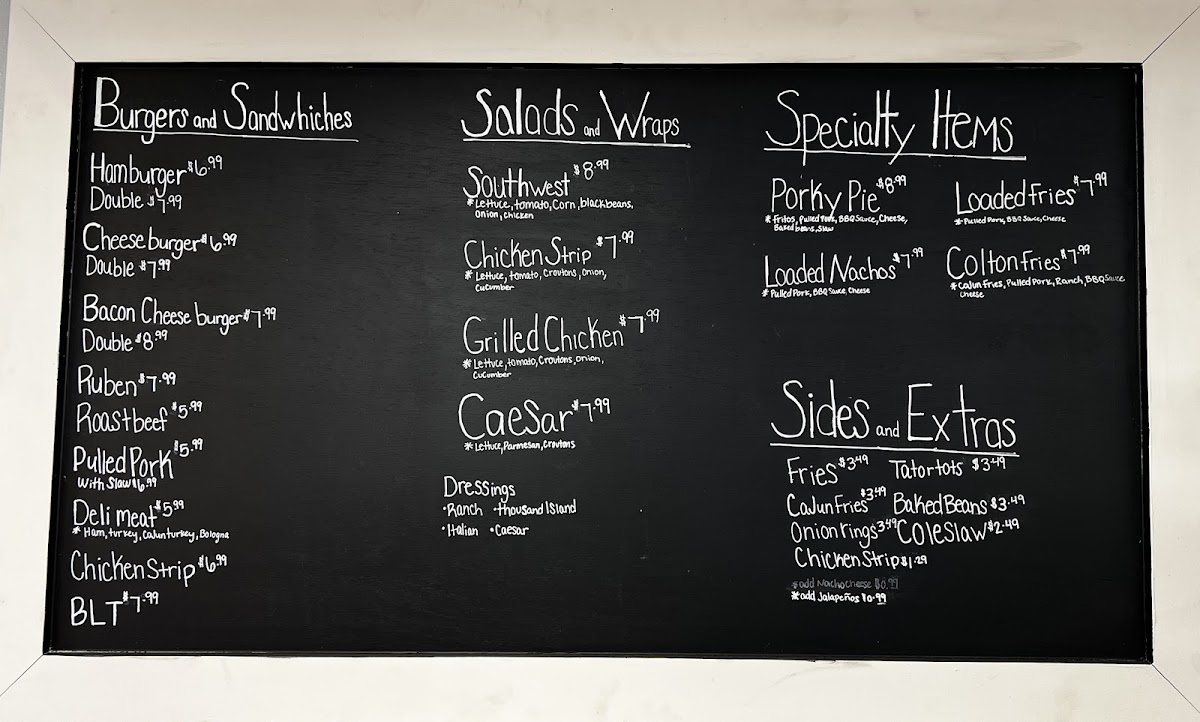 Burgers and Sandwhiches
Hamburger $6.99
Double $7.99
Cheeseburger $6.99
Double $7.99
Bacon Cheeseburger $7.99
Double $8.99
Ruben $7.99
Roastbeef $5.99
Pulled Pork $5.99
With Slaw $6.99
Deli meat $5.99
* Ham, turkey, Cajunturkey, Bologna
Chicken Strip $6.99
BLT $7.99
Salads and Wraps
Southwest $8.99
* Lettuce, tomato, Corn, blackbeans,
Onion, chicken
Chicken Strip $7.99
* Lettuce, tomato, Croutons, Onion,
Cucumber
Grilled Chicken $7.99
* Lettuce, tomato, Croutons, Onion,
Cucumber
Caesar $7.99
* Lettuce, Parmesan, Croutons
Dressings
• Ranch • thousand Island
• Italian • Caesar
Specialty Items
Porky Pie $8.99
* Fritos, Pulled Pork, BBQ Sauce, Cheese,
Baked beans, Slaw
Loaded Fries $7.99
* Pulled Pork, BBQ Sauce, Cheese
Loaded Nachos $7.99
* Pulled Pork, BBQ Sauce, Cheese
Colton Fries $7.99
* Cajun Fries, Pulled Pork, Ranch, BBQ Sauce
Cheese
Sides and Extras
Fries $3.49 Tatortots $3.49
Cajun Fries $3.49 Baked Beans $3.49
Onion rings 3.49 Coleslaw $2.49
Chicken Strip $1.29
*add Nacho Cheese $0.99
*add Jalapeños $0.99